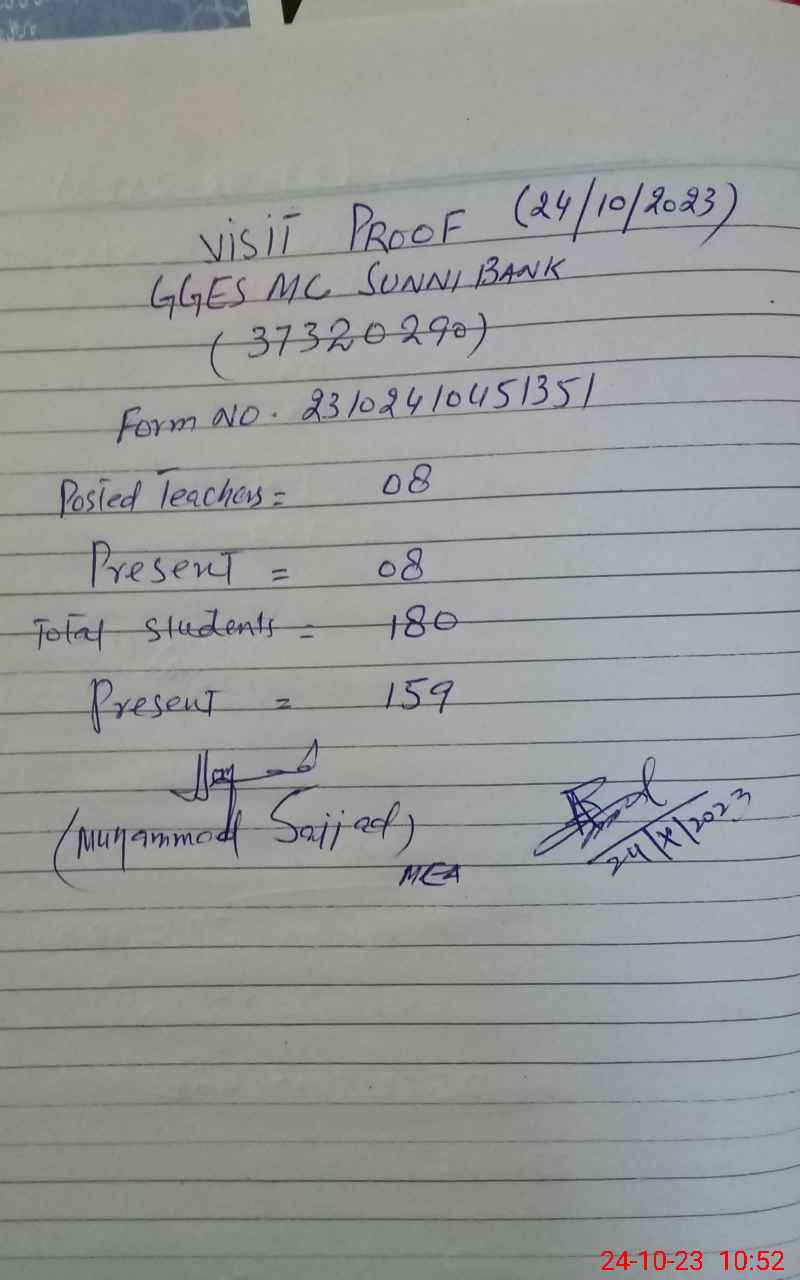 VISIT PROOF (24/10/2023)
GGES MC SUNNI BANK
(37320290)
Form NO. 23102410451351
Posted Teachers = 08
Present = 08
Total Students = 180
Present = 159
(Muhammad Sajjad)
MEA
24/X/2023
24-10-23 10:52